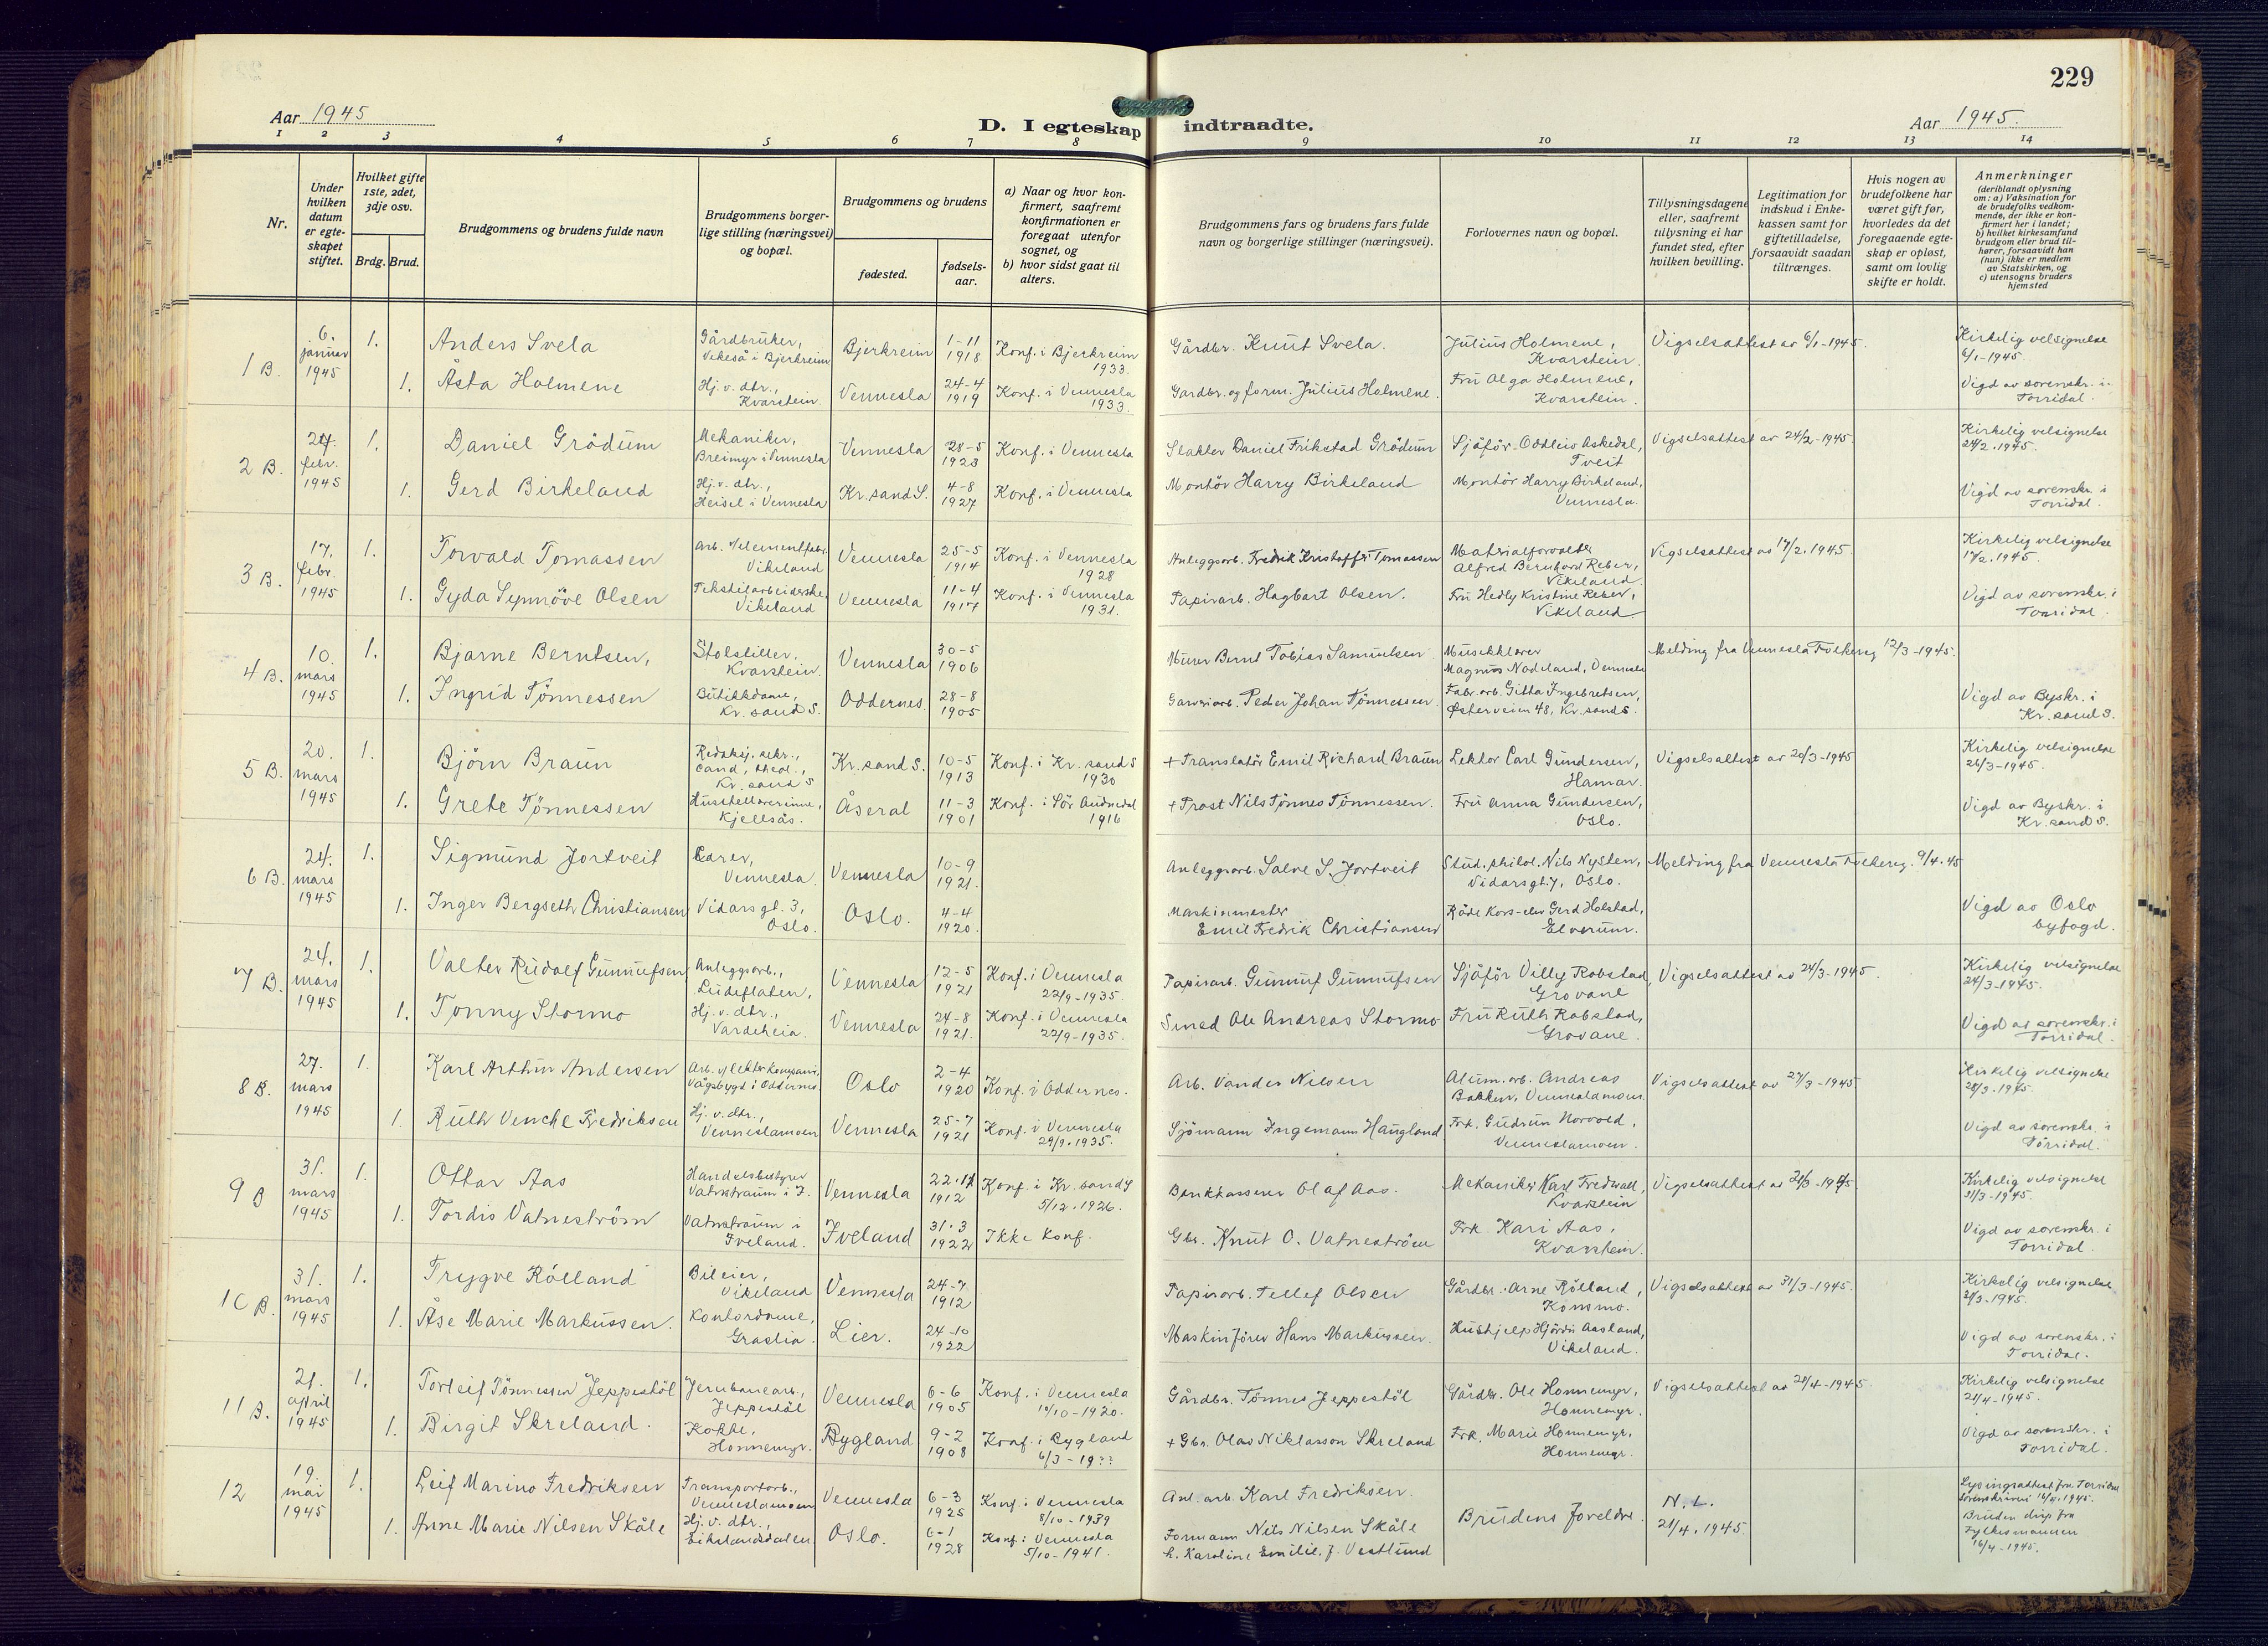 229
Aar 1945
D. I egteskap indtraadte.
Aar 1945.
1 2 3 4 5 6 7 8 9 10 11 12 13 14
Nr.
Under hvilken datum er egte-skapet stiftet.
Hvilket gifte 1ste, 2det, 3dje osv.
Brdg. Brud.
Brudgommens og brudens fulde navn
Brudgommens borger-
lige stilling (næringsvei)
og bopæl.
Brudgommens og brudens
fødested.
fødsels-
aar.
a) Naar og hvor kon-
firmert, saafremt
konfirmationen er
foregaat utenfor
sognet, og
b) hvor sidst gaat til
alters.
Brudgommens fars og brudens fars fulde
navn og borgerlige stillinger (næringsvei).
Forlovernes navn og bopæl.
Tillysningsdagene
eller, saafremt
tillysning ei har
fundet sted, efter
hvilken bevilling.
Legitimation for
indskud i Enke-
kassen samt for
giftetilladelse,
forsaavidt saadan
tiltrænges.
Hvis nogen av
brudefolkene har
været gift før,
hvorledes da det
foregaaende egte-
skap er opløst,
samt om lovlig
skifte er holdt.
Anmerkninger
(deriblandt oplysning
om: a) Vaksination for
de brudefolks vedkom-
mende, der ikke er kon-
firmert her i landet;
b) hvilket kirkesamfund
brudgom eller brud til-
hører, forsaavidt han
(hun) ikke er medlem
av Statskirken, og
c) utensogns bruders
hjemsted
1 B. 6. januar 1945 1. Anders Svela Gårdbruker, Vekeså i Bjerkreim Bjerkreim 1-11 1918 Konf. i Bjerkreim 1933. Gårdbr. Knut Svela. Julius Holmene, Kvarstein. Vigselsattest av 6/1-1945. Kirkelig velsignelse 6/1-1945.
1. Åsta Holmene Hj.v. dtr., Kvarstein. Vennesla 24-4 1919 Konf. i Vennesla 1933. Gardbr. og form. Julius Holmene. Fru Olga Holmene, Kvarstein. Vigd av sorenskr. i Torridal.
2 B. 24. febr. 1945 1. Daniel Grödum Mekaniker, Breimyr i Vennesla Vennesla 28-5 1923 Konf. i Vennesla Slakter Daniel Frikstad Grödum Sjåför Oddleiv Askedal, Tveit Vigselsattest av 24/2-1945. Kirkelig velsignelse 24/2.1945.
1. Gerd Birkeland Hj.v. dtr., Heisel i Vennesla Kr.sand S. 4-8 1927 Konf. i Vennesla Montör Harry Birkeland Montör Harry Birkeland, Vennesla. Vigd av sorenskr. i Torridal.
3 B. 17. febr. 1945 1. Torvald Tomassen Arb. v/elementfabr. Vikeland Vennesla 25-5 1914 Konf. i Vennesla 1928 Anleggsarb. Fredrik Kristoffer Tomassen Materialforvalter Alfred Bernhard Reber, Vikeland. Vigselsattest av 17/2.1945. Kirkelig velsignelse 17/2.1945.
1. Gyda Synnöve Olsen Tekstilarbeiderske, Vikeland Vennesla 11-4 1917 Konf. i Vennesla 1931. Papirarb. Hagbart Olsen. Fru Hedly Kristine Reber, Vikeland. Vigd av sorenskr. i Torridal.
4 B. 10. mars 1945 1. Bjarne Berntsen, Stolstiller, Kvarstein. Vennesla 30-5 1906 Murer Bernt Tobias Samuelsen Musikklærer Magnus Nodeland, Vennesla Melding fra Vennesla Folkereg. 12/3-1945.
1. Ingrid Tönnessen Butikkdame, Kr. sand S. Oddernes. 28-8 1905 Garveriarb. Peder Johan Tönnessen. Fabr.arb. Gitta Ingebretsen, Österveien 48, Kr. sand S. Vigd av Byskr. i Kr. sand S.
5 B. 20. mars 1945 1. Björn Braun Redaksj.sekr., cand. theol., Kr. sand S Kr.sand S. 10-5 1913 Konf. i Kr. sand S 1930 + Translatör Emil Richard Braun Lektor Carl Gundersen, Hamar. Vigselsattest av 20/3-1945 Kirkelig velsignelse 20/3-1945.
1. Grete Tönnessen Husstellærerinne, Kjellsås. Åseral 11-3 1901 Konf. i Sör Audnedal 1916 + Prost Nils Tönnes Tönnessen. Fru Anna Gundersen, Oslo. Vigd av Byskr. i Kr. sand S.
6 B. 24. mars 1945 1. Sigmund Jortveit Lærer, Vennesla. Vennesla 10-9 1921. Anleggsarb. Salve S. Jortveit Stud. philol. Nils Nysten, Vidarsgt.7, Oslo. Melding fra Vennesla Folkereg. 9/4.45
1. Inger Bergseth Christiansen Vidarsgt. 3, Oslo. Oslo. 4-4 1920. Maskinmester Emil Fredrik Christiansen Röde Kors-elev Gerd Holstad, Elverum. Vigd av Oslo byfogd.
7 B. 24. mars 1945 1. Valter Rudolf Gunnufsen Anleggsarb., Ludeflaten, Vennesla 12-5 1921 Konf. i Vennesla 22/9-1935. Papirarb. Gunnuf Gunnufsen Sjåför Villy Robstad, Grovane Vigselsattest av 24/3-1945. Kirkelig velsignelse 24/3-1945.
1. Tonny Stormo Hj.v. dtr., Vardeheia. Vennesla 24-8 1921. Konf. i Vennesla 22/9-1935. Smed Ole Andreas Stormo Fru Ruth Robstad, Grovane. Vigd av sorenskr. i Torridal.
8 B. 27. mars 1945 1. Karl Arthur Andersen Vågsbygd i Oddernes Oslo 2-4 1920 Konf. i Oddernes. Arb. Vander Nilsen Alum. arb. Andreas Bakken, Venneslamoen. Vigselsattest av 27/3-1945 Kirkelig velsignelse
1. Ruth Venche Fredriksen Hj.v. dtr., Venneslamoen Vennesla 25-7 1921 Konf. i Vennesla 29/9.1935. Sjömann Ingemann Haugland Frk. Gudrun Norvold, Venneslamoen. Vigd av sorenskr. i Torridal.
9 B 31. mars 1945 1. Ottar Aas Handelsbestyrer Vatnstraum i I. Vennesla 22.11 1912 Konf. i Kr. sand S 5/12.1926. Bankkasserer Olaf Aas. Mekaniker Karl Fredwall, Kvarstein Vigselsattest av 31/3-1945. Kirkelig velsignelse 31/3-1945.
1. Tordis Vatneström Vatnstraum i Iveland. Iveland 31.3 1922 Ikke konf. Gbr. Knut O. Vatneström Frk. Kari Aas, Kvarstein. Vigd av sorenskr. i Torridal.
10 B. 31. mars 1945 1. Trygve Rölland Bileier, Vikeland Vennesla 24-7. 1912 Papirarb. Tellef Olsen Gårdbr. Arne Rölland, Konsmo. Vigselsattest av 31/3-1945. Kirkelig velsignelse 31/3-1945.
1. Åse Marie Markussen. Kontordame, Graslia. Lier. 24-10 1922 Maskinförer Hans Markussen. Hushjelp Hjördis Aasland, Vikeland. Vigd av sorenskr. i Torridal.
11 B. 21. april 1945 1. Torleif Tönnessen Jeppestöl Jernbanearb., Jeppestöl Vennesla 6-6 1905 Konf. i Vennesla 10/10-1920. Gårdbr. Tönnes Jeppestöl Gårdbr. Ole Honnemyr, Honnemyr. Vigselsattest av 21/4-1945. Kirkelig velsignelse 21/4-1945.
1. Birgit Skreland. Kokke, Honnemyr. Bygland 9-2 1908 Konf. i Bygland 6/3-19?? + Gbr. Olav Niklasson Skreland Frk. Marie Honnemyr, Honnemyr. Vigd av sorenskr. i Torridal.
12 19. mai 1945 1. Leif Marino Fredriksen Transportarb., Venneslamoen Vennesla 6-3 1925 Konf. i Vennesla 8/10-1939 Anl. arb. Karl Fredriksen. Brudens foreldre. N.L. 21/4.1945. Lysingsattest fra Torridal Sorenskriveri 16/4.1945.
1. Anne Marie Nilsen Skåle Hj.v. dtr., Eikelandsdalen Oslo. 6-1 1928 Konf. i Vennesla 5/10-1941. Formann Nils Nilsen Skåle h. Karoline Emilie f. Vestlund Bruden disp fra Fylkesmannen 16/4-1945.